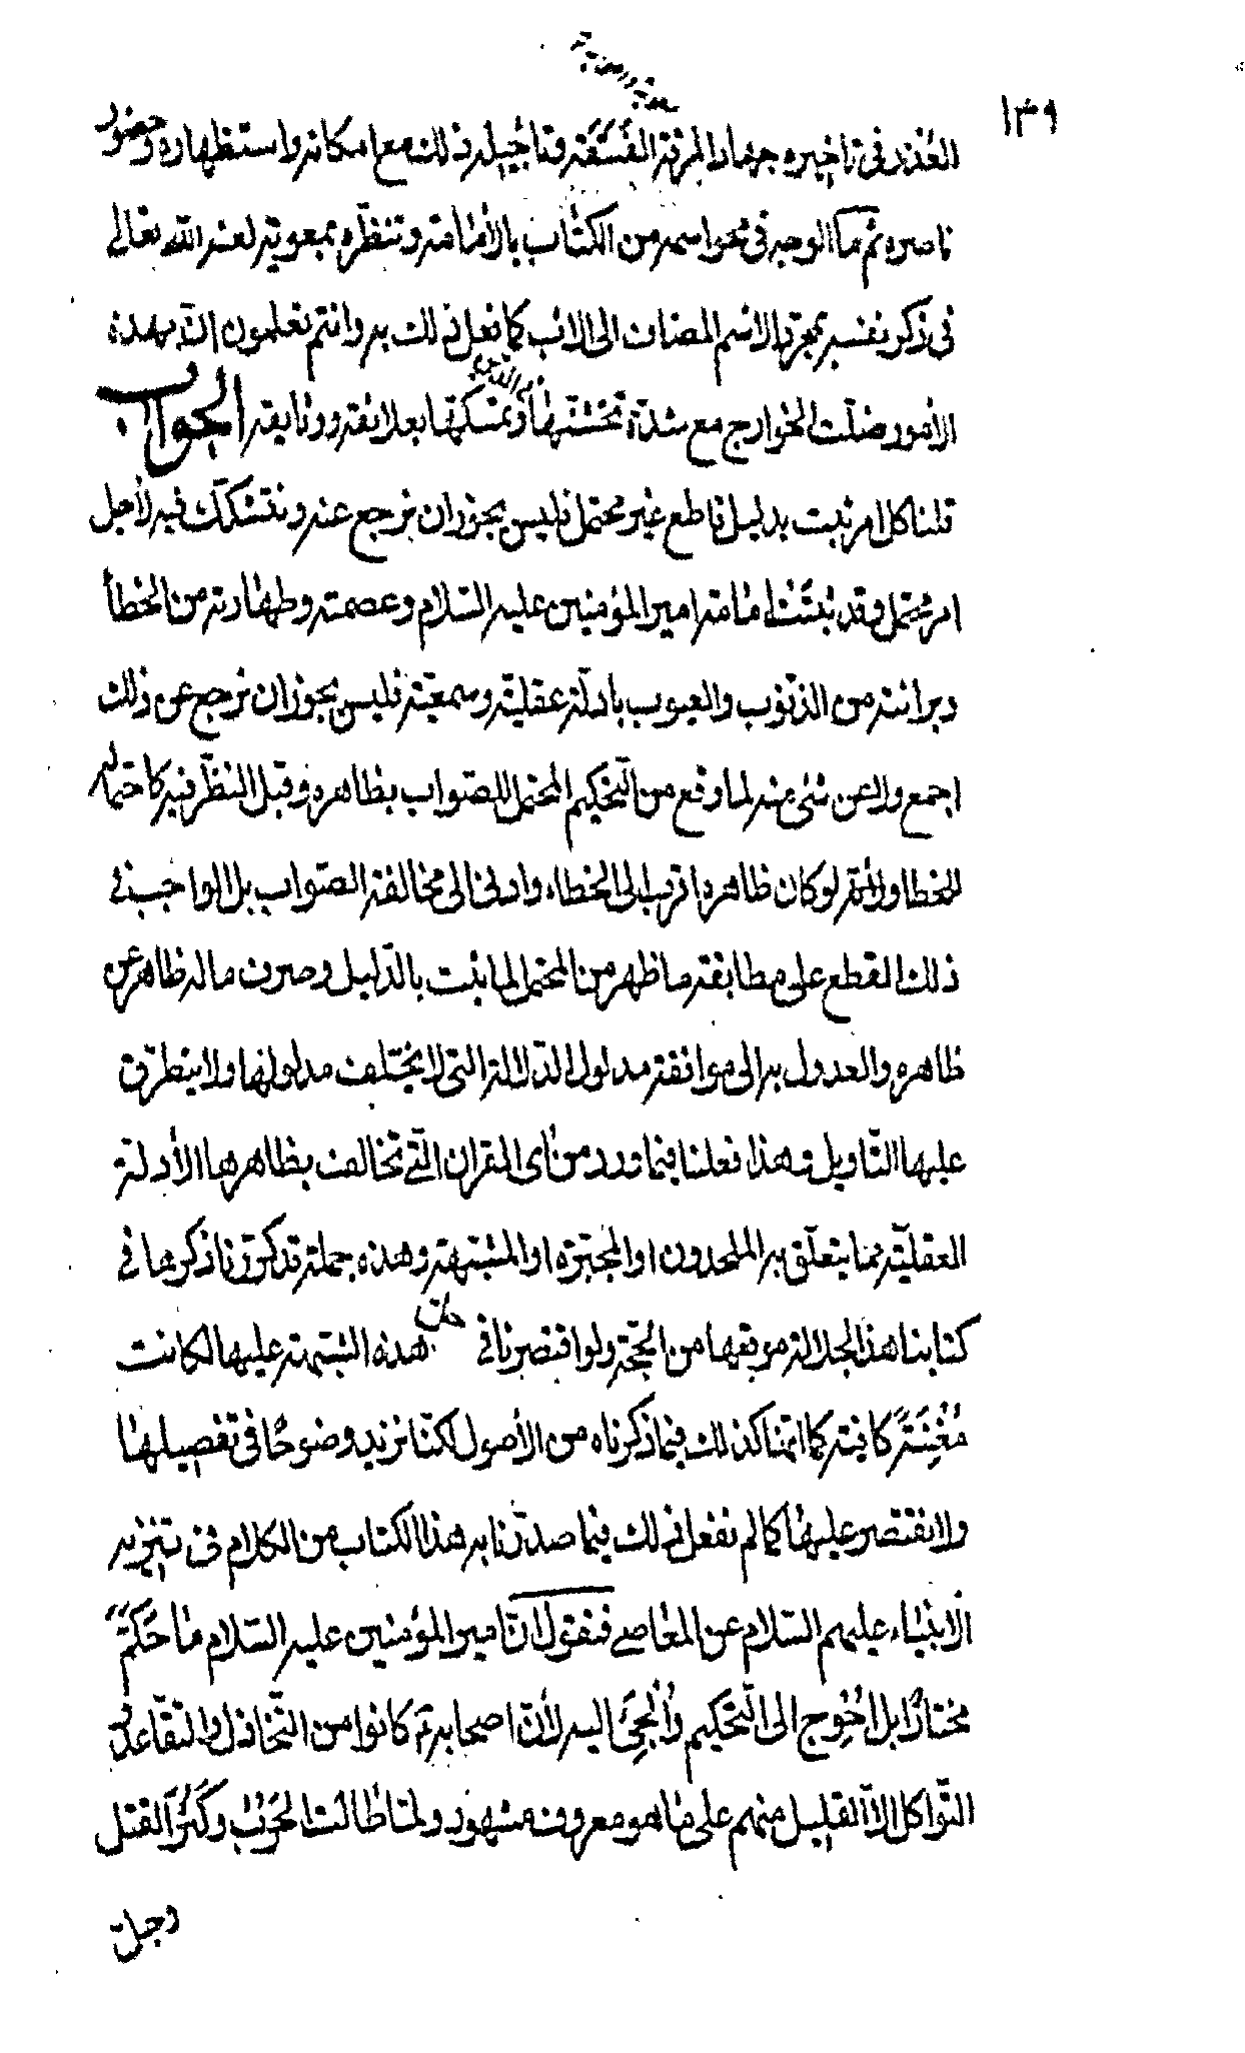 ١٣٩
العذر في تاخيره جهاد المرقة الفسقة وتاجيله ذلك مع امكانه واستظهاره وحضور
ناصره ثم ما الوجه في محو اسمه من الكتاب بالأمامة وتنظره بمعوية لعنه الله تعالى
في ذكر نفسه بمجرد الاسم المضاف الى الاب كما فعل ذلك به وانتم تعلمون ان بهذه
الأمور ضلت الخوارج مع شدة تخشنها في الدين وتمسكها بعلائقه ووثايقه الجواب
قلنا كل امر ثبت بدليل قاطع غير محتمل فليس يجوز ان نرجع عنه ونتشكك فيه لأجل
امر محتمل وقد ثبتت امامة امير المؤمنين عليه السلام وعصمته وطهارته من الخطأ
وبرائته من الذنوب والعيوب بادلة عقلية وسمعية فليس يجوز ان نرجع عن ذلك
اجمع ولا عن شئ منه لما وقع من التحكيم المحتمل للصواب بظاهره وقبل النظر فيه كاحتماله
للخطا ولأنه لو كان ظاهره اقرب الى الخطاء وادنى الى مخالفة الصواب بل الواجب في
ذلك القطع على مطابقة ما ظهر من المحتمل لما ثبت بالدليل وصرف ماله ظاهر عن
ظاهره والعدول به الى موافقة مدلول الدلالة التي لا يختلف مدلولها ولا يتطرق
عليها التاويل وهذا فعلنا فيما ورد من اى القران التي تخالف بظاهرها الأدلة
العقلية مما يتعلق به الملحدون او المجبرة او المشبهة وهذه جملة قد كررنا ذكرها في
كتابنا هذا لجلالة موقعها من الحجة ولو اقتصرنا في حل هذه الشبهة عليها لكانت
مغنية كافية كما انها كذلك فيما ذكرناه من الأصول لكنا نزيد وضوحا في تفصيلها
ولا نقتصر عليها كما لم نفعل ذلك فيما صدرنا به هذا الكتاب من الكلام في تنزيه
الأنبياء عليهم السلام عن المعاصي فنقول ان امير المؤمنين عليه السلام ما حكم
مختارا بل احوج الى التحكيم والجئ اليه لأن اصحابه كانوا من التخاذل والتقاعد و
التواكل الا القليل منهم على ما هو معروف مشهور ولما طالت الحرب وكثر القتل
وجل